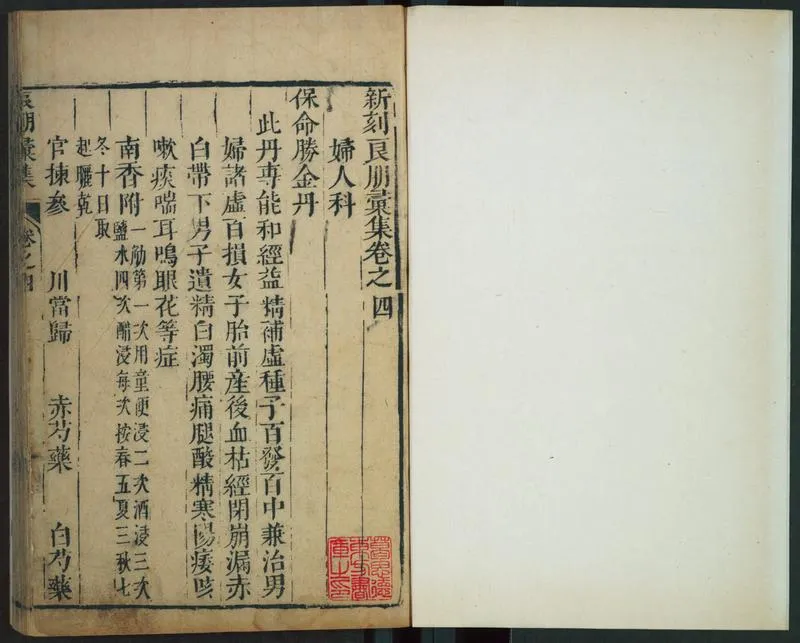 新刻良朋彙集卷之四
婦人科
保命勝金丹
此丹專能和經益精補虛種子百發百中兼治男
婦諸虛百損女子胎前產後血枯經閉崩漏赤
白帶下男子遺精白濁腰痛腿酸精寒陽痿咳
嗽痰喘耳鳴眼花等症
南香附一觔第一次用童便浸二次酒浸三次
鹽水四次醋浸每次按春五夏三秋七
冬十日取
起曬乾
官揀參 川當歸 赤芍藥 白芍藥
良朋彙集 卷之四